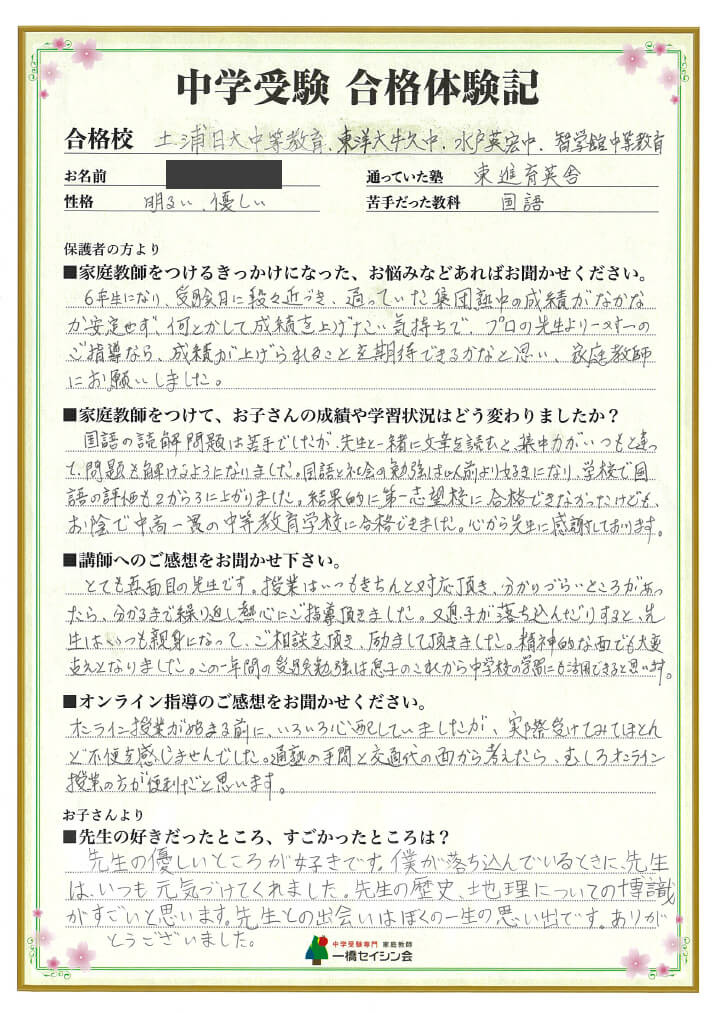 中学受験 合格体験記
合格校 土浦日大中等教育、東洋大牛久中、水戸英宏中、智学館中等教育
お名前 通っていた塾 東進育英舎
性格 明るい、優しい 苦手だった教科 国語
保護者の方より
■家庭教師をつけるきっかけになった、お悩みなどあればお聞かせください。
6年生になり、受験日に段々近づき、通っていた集団塾中の成績がなかな
か安定せず、何とかして成績を上げたい気持ちで、プロの先生より一対一の
ご指導なら、成績が上げられることを期待できるかなと思い、家庭教師
にお願いしました。
■家庭教師をつけて、お子さんの成績や学習状況はどう変わりましたか？
国語の読解問題は苦手でしたが、先生と一緒に文章を読むと、集中力がいつもと違っ
て、問題も解けるようになりました。国語と社会の勉強は以前より好きになり、学校で国
語の評価も2から3に上がりました。結果的に第一志望校に合格できなかったけども、
お陰で中高一貫の中等教育学校に合格できました。心から先生に感謝しております。
■講師へのご感想をお聞かせ下さい。
とても真面目の先生です。授業はいつもきちんと対応頂き、分かりづらいところがあっ
たら、分かるまで繰り返し熱心にご指導頂きました。又息子が落ち込んだりすると、先
生はいつも親身になって、ご相談を頂き、励まして頂きました。精神的な面でも大変
支えとなりました。この一年間の受験勉強は息子のこれから中学校の学習にも活用できると思います。
■オンライン指導のご感想をお聞かせください。
オンライン授業が始まる前に、いろいろ心配していましたが、実際受けてみてほとん
ど不便を感じませんでした。通塾の手間と交通代の面から考えたら、むしろオンライン
授業の方が便利だと思います。
お子さんより
■先生の好きだったところ、すごかったところは？
先生の優しいところが好きです。僕が落ち込んでいるときに、先生
は、いつも元気づけてくれました。先生の歴史、地理についての博識
がすごいと思います。先生との出会いはぼくの一生の思い出です。ありが
とうございました。
中学受験専門 家庭教師
一橋セイシン会